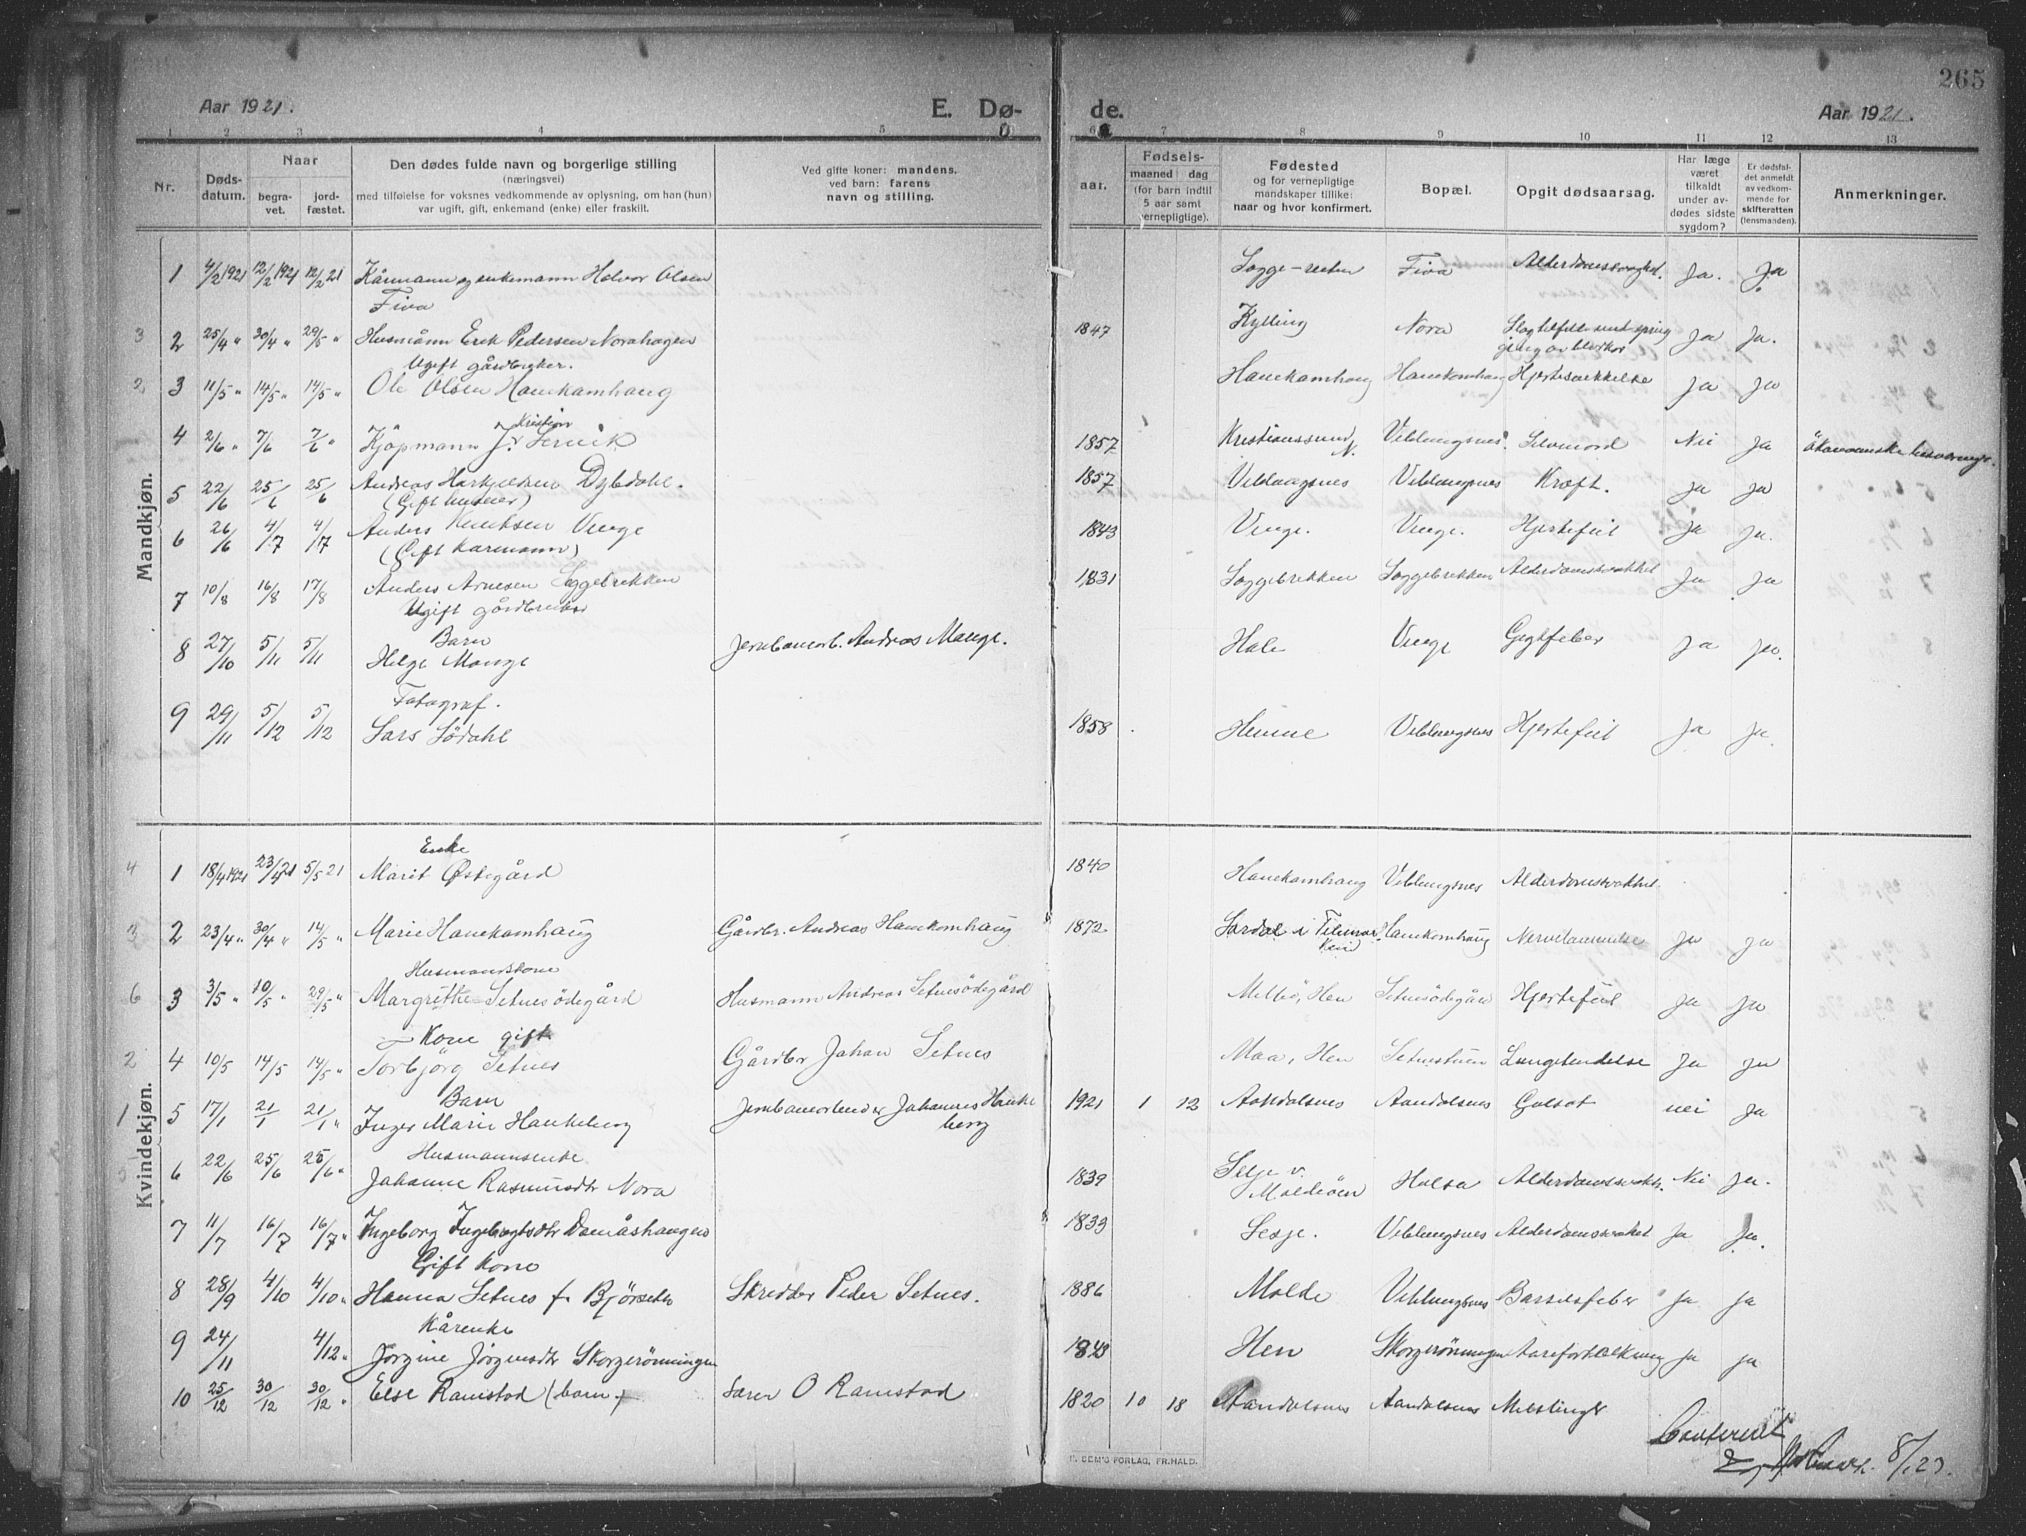 265
Aar 1921.
E. Dø-
de.
Aar 1921.
1 2 3 4 5 6 7 8 9 10 11 12 13
Nr.
Døds-
datum.
Naar
begra-
vet.
jord-
fæstet.
Den dødes fulde navn og borgerlige stilling
(næringsvei)
med tilføielse for voksnes vedkommende av oplysning, om han (hun)
var ugift, gift, enkemand (enke) eller fraskilt.
Ved gifte koner: mandens.
ved barn: farens
navn og stilling.
aar.
Fødsels-
maaned dag
(for barn indtil
5 aar samt
vernepligtige).
Fødested
og for vernepligtige
mandskaper tillike:
naar og hvor konfirmert.
Bopæl.
Opgit dødsaarsag.
Har læge
været
tilkaldt
under av-
dødes sidste
sygdom?
Er dødsfal-
det anmeldt
av vedkom-
mende for
skifteretten
(lensmanden).
Anmerkninger.
Mandkjøn.
1 4/2 1921 12/2 1921 12/2 21 Kårmann og enkemann Halvor Olsen Sogge Fiva Ja. Ja
Fiva
3 2 25/4 " 30/4 " 29/5 " Husmann Erik Pedersen Norahagen 1847 Kylling Nora Ja Ja.
Ugift gårdbruker.
2 3 11/5 " 14/5 " 14/5 " Ole Olsen Hanekamhaug Hanekamhaug Hanekamhaug Hjertesvekkelse Ja Ja
Kristian
4 2/6 " 7/6 7/6 " Kjöpmann J. 1857 Kristianssund N. Veblungsnes Selvmord Nei Ja ökonomiske
5 22/6 25/6 25/6 Andreas Dybdahl. 1857 Veblungsnes Veblungsnes Kræft. Ja Ja
(Gift
6 26/6 4/7 4/7 Anders Knudsen Venge 1843 Venge. Venge. Hjertefeil Ja Ja.
(Gift Kårmann)
7 10/8 16/8 17/8 Anders Arnesen Soggebrekken 1831 Soggebrekken Soggebrekken Alderdomssvakhet Ja Ja
Ugift gårdbruker
Barn
8 27/10 5/11 5/11 Helge Mange Jernbanearb. Andreas Mange. Hole Venge Gigtfeber Ja Ja.
Fotograf.
9 29/11 5/12 5/12 Lars Södahl 1858 Hemne Veblungsnes Hjertefeil Ja Ja.
Kvindekjøn.
Enke
4 1 18/4 1921 23/4 21 5/5 21 Marit Østigård 1840 Hanekamhaug Veblungsnes Alderdomssvakhet.
3 2 23/4 " 30/4 " 14/5 " Marie Hanekamhaug Gårdbr. Andreas Hanekamhaug 1872 i Hanekamhaug Ja Ja
Husmandskone
6 3 3/5 " 10/5 " 29/5 " Margrethe Setnesödegård Husmann Andreas Setnesödegård Hen Setnesödegård Hjertefeil Ja Ja
Kone gift
2 4 10/5 14/5 14/5 " Torbjörg Setnes Gårdbr Johan Setnes Maa, Hen Lungebetendelse Ja Ja
Barn
1 5 17/1 21/1 21/1 " Inger Marie Haukeberg Jernbanearbeider Johannes Haukeberg 1921 1 12 Aandalsnes Aandalsnes Gulsot nei Ja
Husmannsenke
6 22/6 25/6 25/6 " Johanne Rasmusdtr Nora 1839 Selje v Moldöen Holsa Alderdomssvakh. Nei Ja.
7 11/7 16/7 16/7 " Ingeborg Ingebrigtsdtr Damåshaugen 1833 Lesje. Veblungsnes Alderdomssvakhet Ja Ja.
Gift Kone
8 28/9 4/10 4/10 " Hanna Setnes f. Björseth Skredder Peder Setnes. 1886 Molde Veblungsnes Barselfeber Ja Ja
Kårenke
9 24/11 4/12 " Jörgine Jörgensdtr Skorgerönningen 1843 Hen Skorgerönningen Aareforkalkning Ja Ja
10 25/12 30/12 30/12 " Else Ramstad (barn) Søren O Ramstad 1820 10 18 Aandalsnes Aandalsnes Meslinger
Conferert
8/1 23.
N. SEM'S FORLAG, FR.HALD.